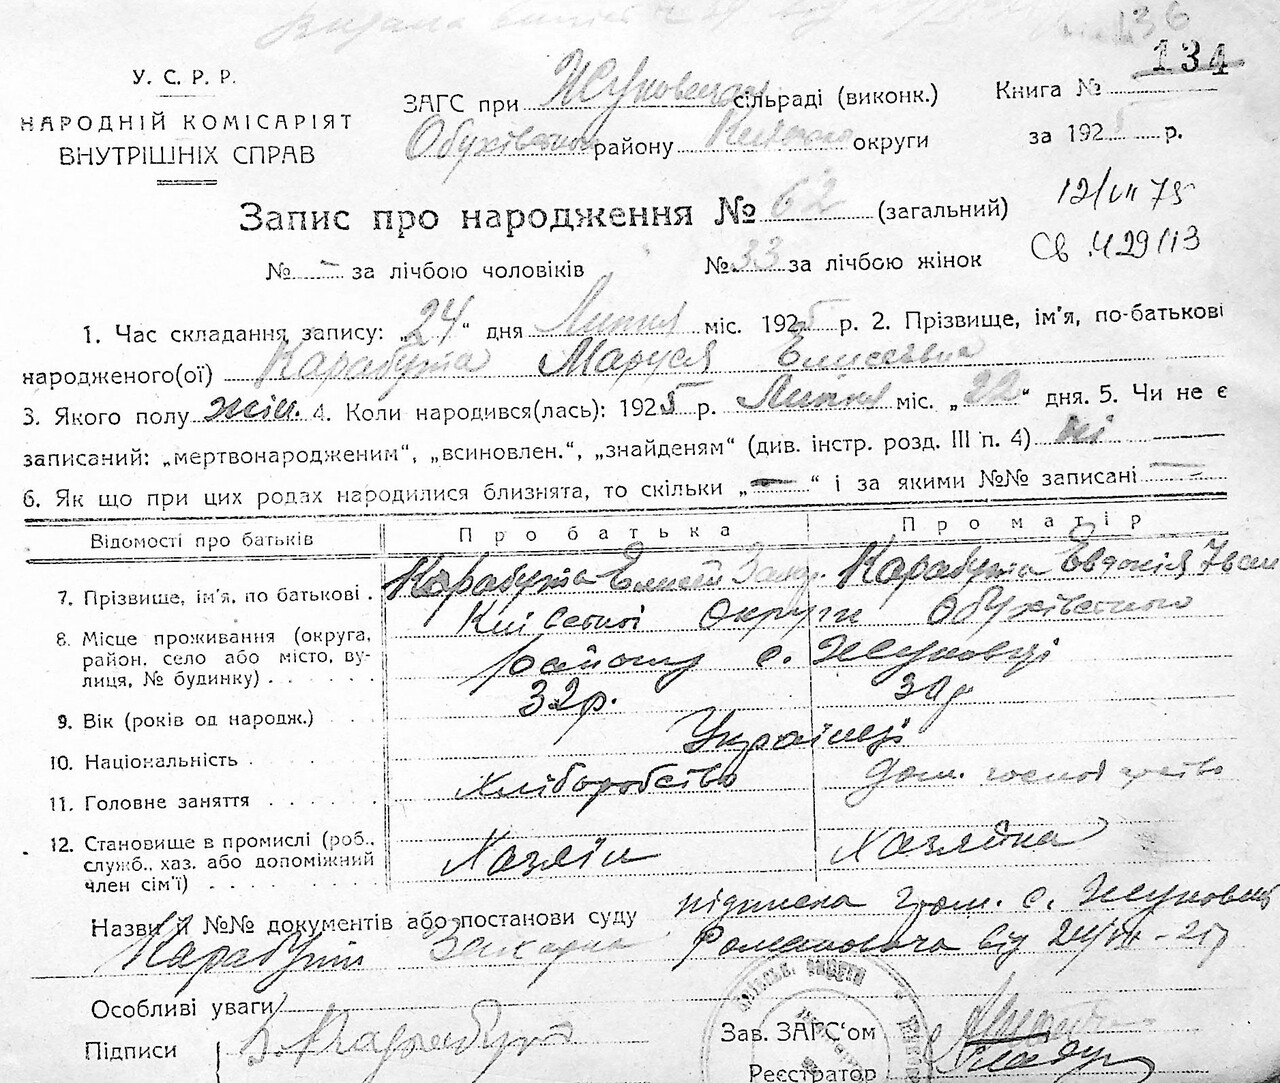 136
134
У. С. Р. Р.
НАРОДНІЙ КОМІСАРІЯТ
ВНУТРІШНІХ СПРАВ
ЗАГС при Жуковецькій сільраді (виконк.) Книга №
Обухівського району Київської округи за 1925 р.
Запис про народження № 62 (загальний)
12/VII 75
№ — за лічбою чоловіків № 33 за лічбою жінок
Св. 429113
1. Час складання запису: „24“ дня Липня міс. 1925 р. 2. Прізвище, ім'я, по-батькові
народженого(ої) Карабута Маруся Елисеївна
3. Якого полу жін. 4. Коли народився(лась): 1925 р. Липня міс. „22“ дня. 5. Чи не є
записаний: „мертвонародженим“, „всиновлен.“, „знайденям“ (див. інстр. розд. III п. 4) ні
6. Як що при цих родах народилися близнята, то скільки „—“ і за якими №№ записані —
Відомості про батьків Про батька Про матір
7. Прізвище, ім'я, по батькові . Карабута Елисей Зах. Карабута Евдокія Іван
8. Місце проживання (округа, Київської Округи Обухівського
район, село або місто, ву- району с. Жуковці
лиця, № будинку) . . . . .
9. Вік (років од народж.) . . 32р. 31р
10. Національність . Українці
11. Головне заняття . . . . . . Хліборобство Дом. господарство
12. Становище в промислі (роб.,
служб., хаз. або допоміжний Хазяїн Хазяйка
член сім'ї) . . . . . . . .
Назви й №№ документів або постанови суду підписка гром. с. Жуковці
Карабути Захарка Романовича від 24/VII-25р
Особливі уваги —
Підписи Карабута
Зав. ЗАГС'ом
Реєстратор